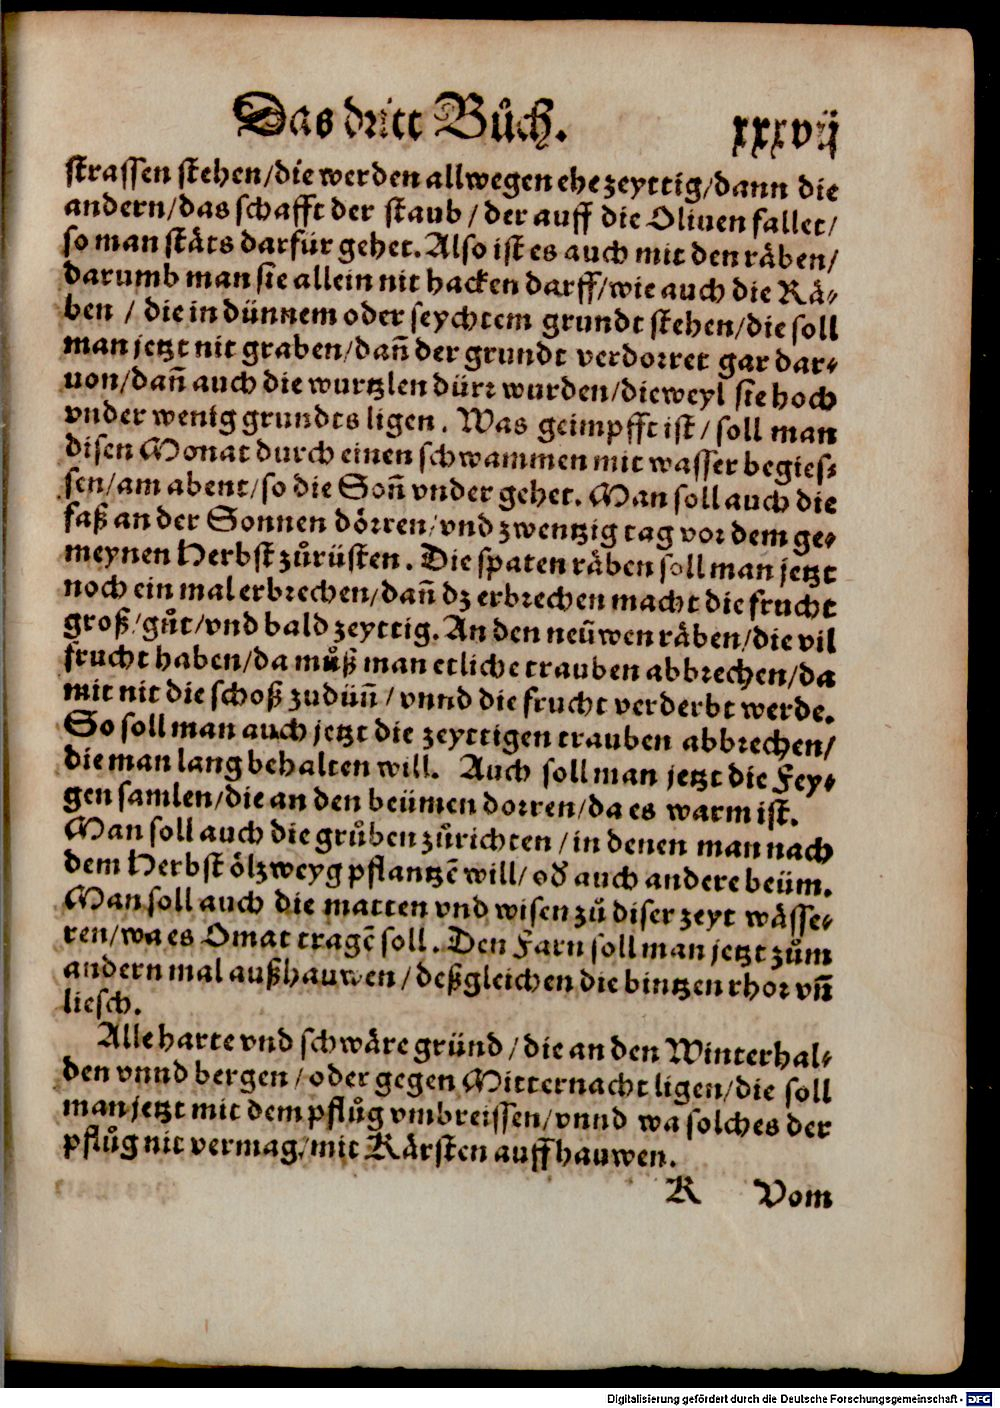 Das dritt Bůch. xxxvij
strassen stehen/die werden allwegen ehe zeyttig/dann die
andern/das schafft der staub/der auff die Oliuen fallet/
so man stäts darfür gehet. Also ist es auch mit den räben/
darumb man sie allein nit hacken darff/wie auch die Rä-
ben / die in dünnem oder seychtem grundt stehen/die soll
man jetzt nit graben/dañ der grundt verdorret gar dar-
uon/dañ auch die wurtzlen dürr wurden/dieweyl sie hoch
vnder wenig grundts ligen. Was geimpfft ist/ soll man
disen Monat durch einen schwammen mit wasser begies-
sen/am abent/so die Soñ vnder gehet. Man soll auch die
faß an der Sonnen dörren/vnd zwentzig tag vor dem ge-
meynen Herbst zůrüsten. Die spaten räben soll man jetzt
noch ein mal erbrechen/dañ dz erbrechen macht die frucht
groß/gůt/vnd bald zeyttig. An den neüwen räben/die vil
frucht haben/da můß man etliche trauben abbrechen/da
mit nit die schoß zudüñ/vnnd die frucht verderbt werde.
So soll man auch jetzt die zeyttigen trauben abbrechen/
die man lang behalten will. Auch soll man jetzt die Fey-
gen samlen/die an den beümen dorren/da es warm ist.
Man soll auch die grůben zůrichten/in denen man nach
dem Herbst ölzweyg pflantzē will/od̕ auch andere beüm.
Man soll auch die matten vnd wisen zů diser zeyt wässe-
ren/wa es Omat tragē soll. Den Farn soll man jetzt zům
andern mal außhauwen/deßgleichen die bintzen rhor vñ
liesch.
Alle harte vnd schwäre gründ/die an den Winterhal-
den vnnd bergen/oder gegen Mitternacht ligen/die soll
man jetzt mit dem pflůg vmbreissen/vnnd wa solches der
pflůg nit vermag/mit Kärsten auffhauwen.
K Vom
Digitalisierung gefördert durch die Deutsche Forschungsgemeinschaft - DFG